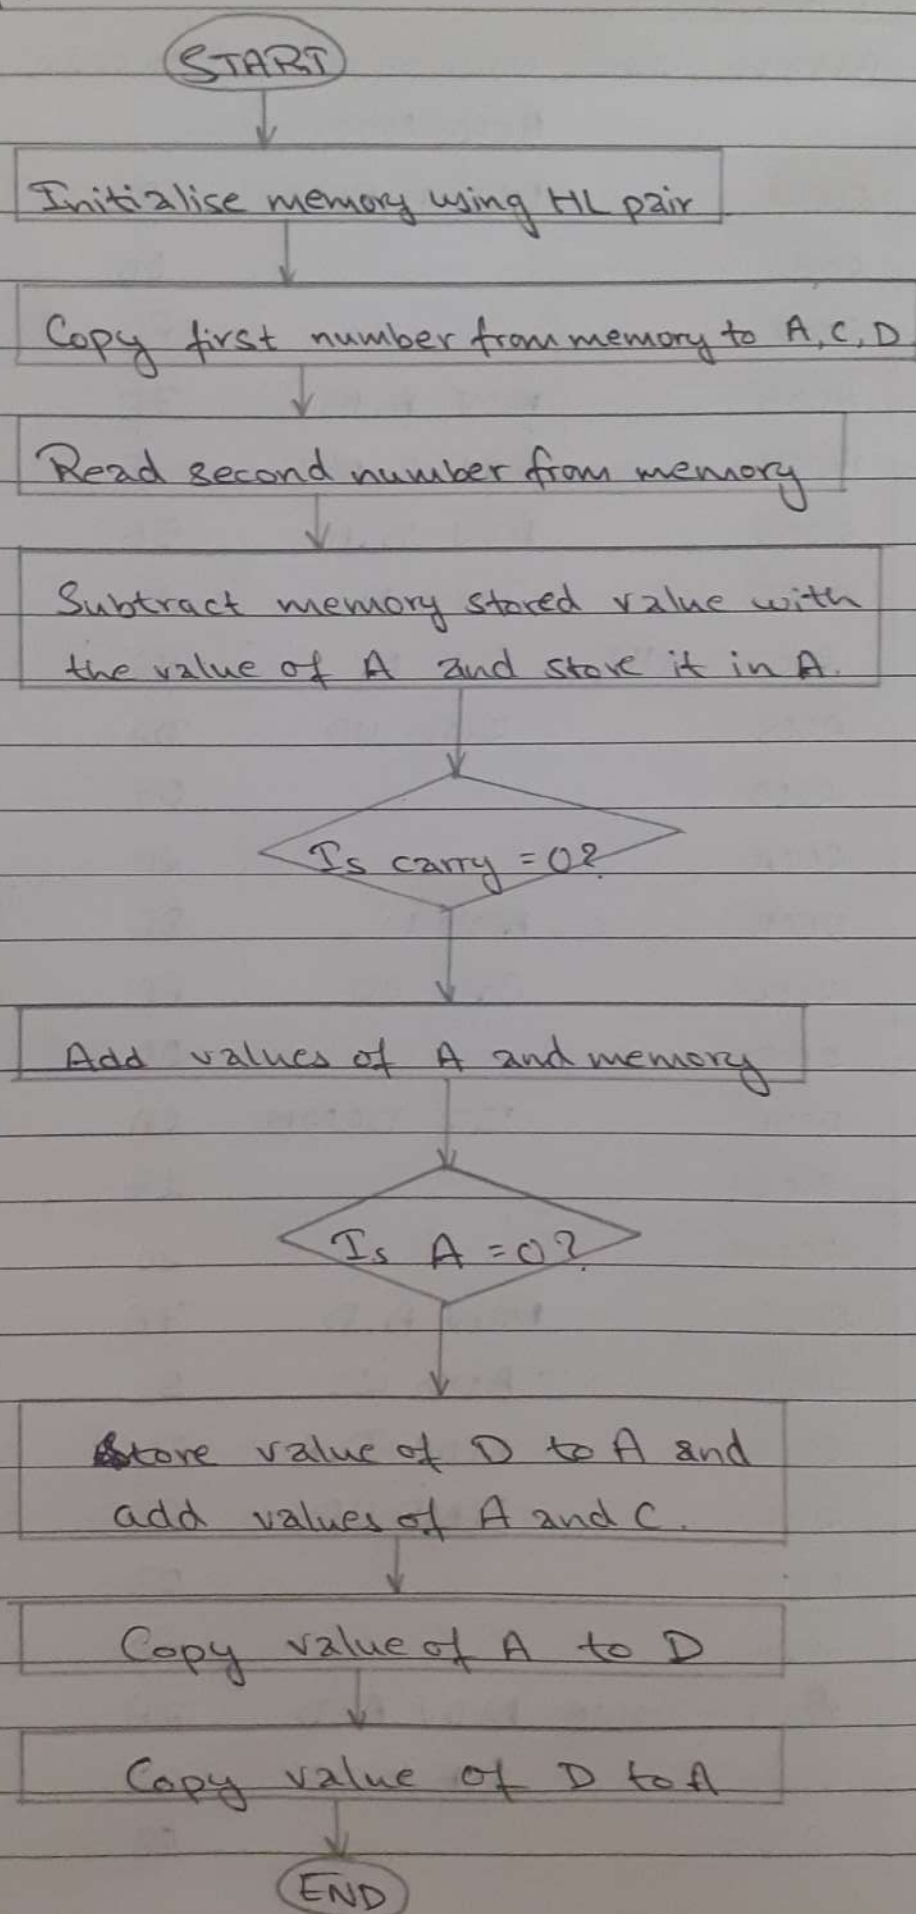 START
Initialise memory using HL pair
Copy first number from memory to A, C, D
Read second number from memory
Subtract memory stored value with
the value of A and store it in A.
Is carry = 0?
Add values of A and memory
Is A = 0?
Store value of D to A and
add values of A and C.
Copy value of A to D
Copy value of D to A
END